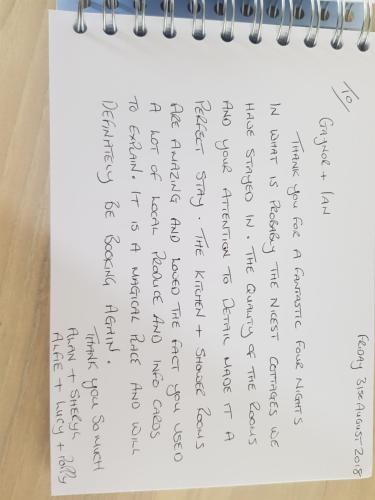 FRIDAY 31ST AUGUST 2018
TO/
GAYNOR + IAN
THANK YOU FOR A FANTASTIC FOUR NIGHTS
IN WHAT IS PROBABLY THE NICEST COTTAGES WE
HAVE STAYED IN. THE QUALITY OF THE ROOMS
AND YOUR ATTENTION TO DETAIL MADE IT A
PERFECT STAY. THE KITCHEN + SHOWER ROOMS
ARE AMAZING AND LOVED THE FACT YOU USED
A LOT OF LOCAL PRODUCE AND INFO CARDS
TO EXPLAIN. IT IS A MAGICAL PLACE AND WILL
DEFINATELY BE BOOKING AGAIN.
THANK YOU SO MUCH
ALAN + SHERYL
ALFIE + LUCY + POLLY